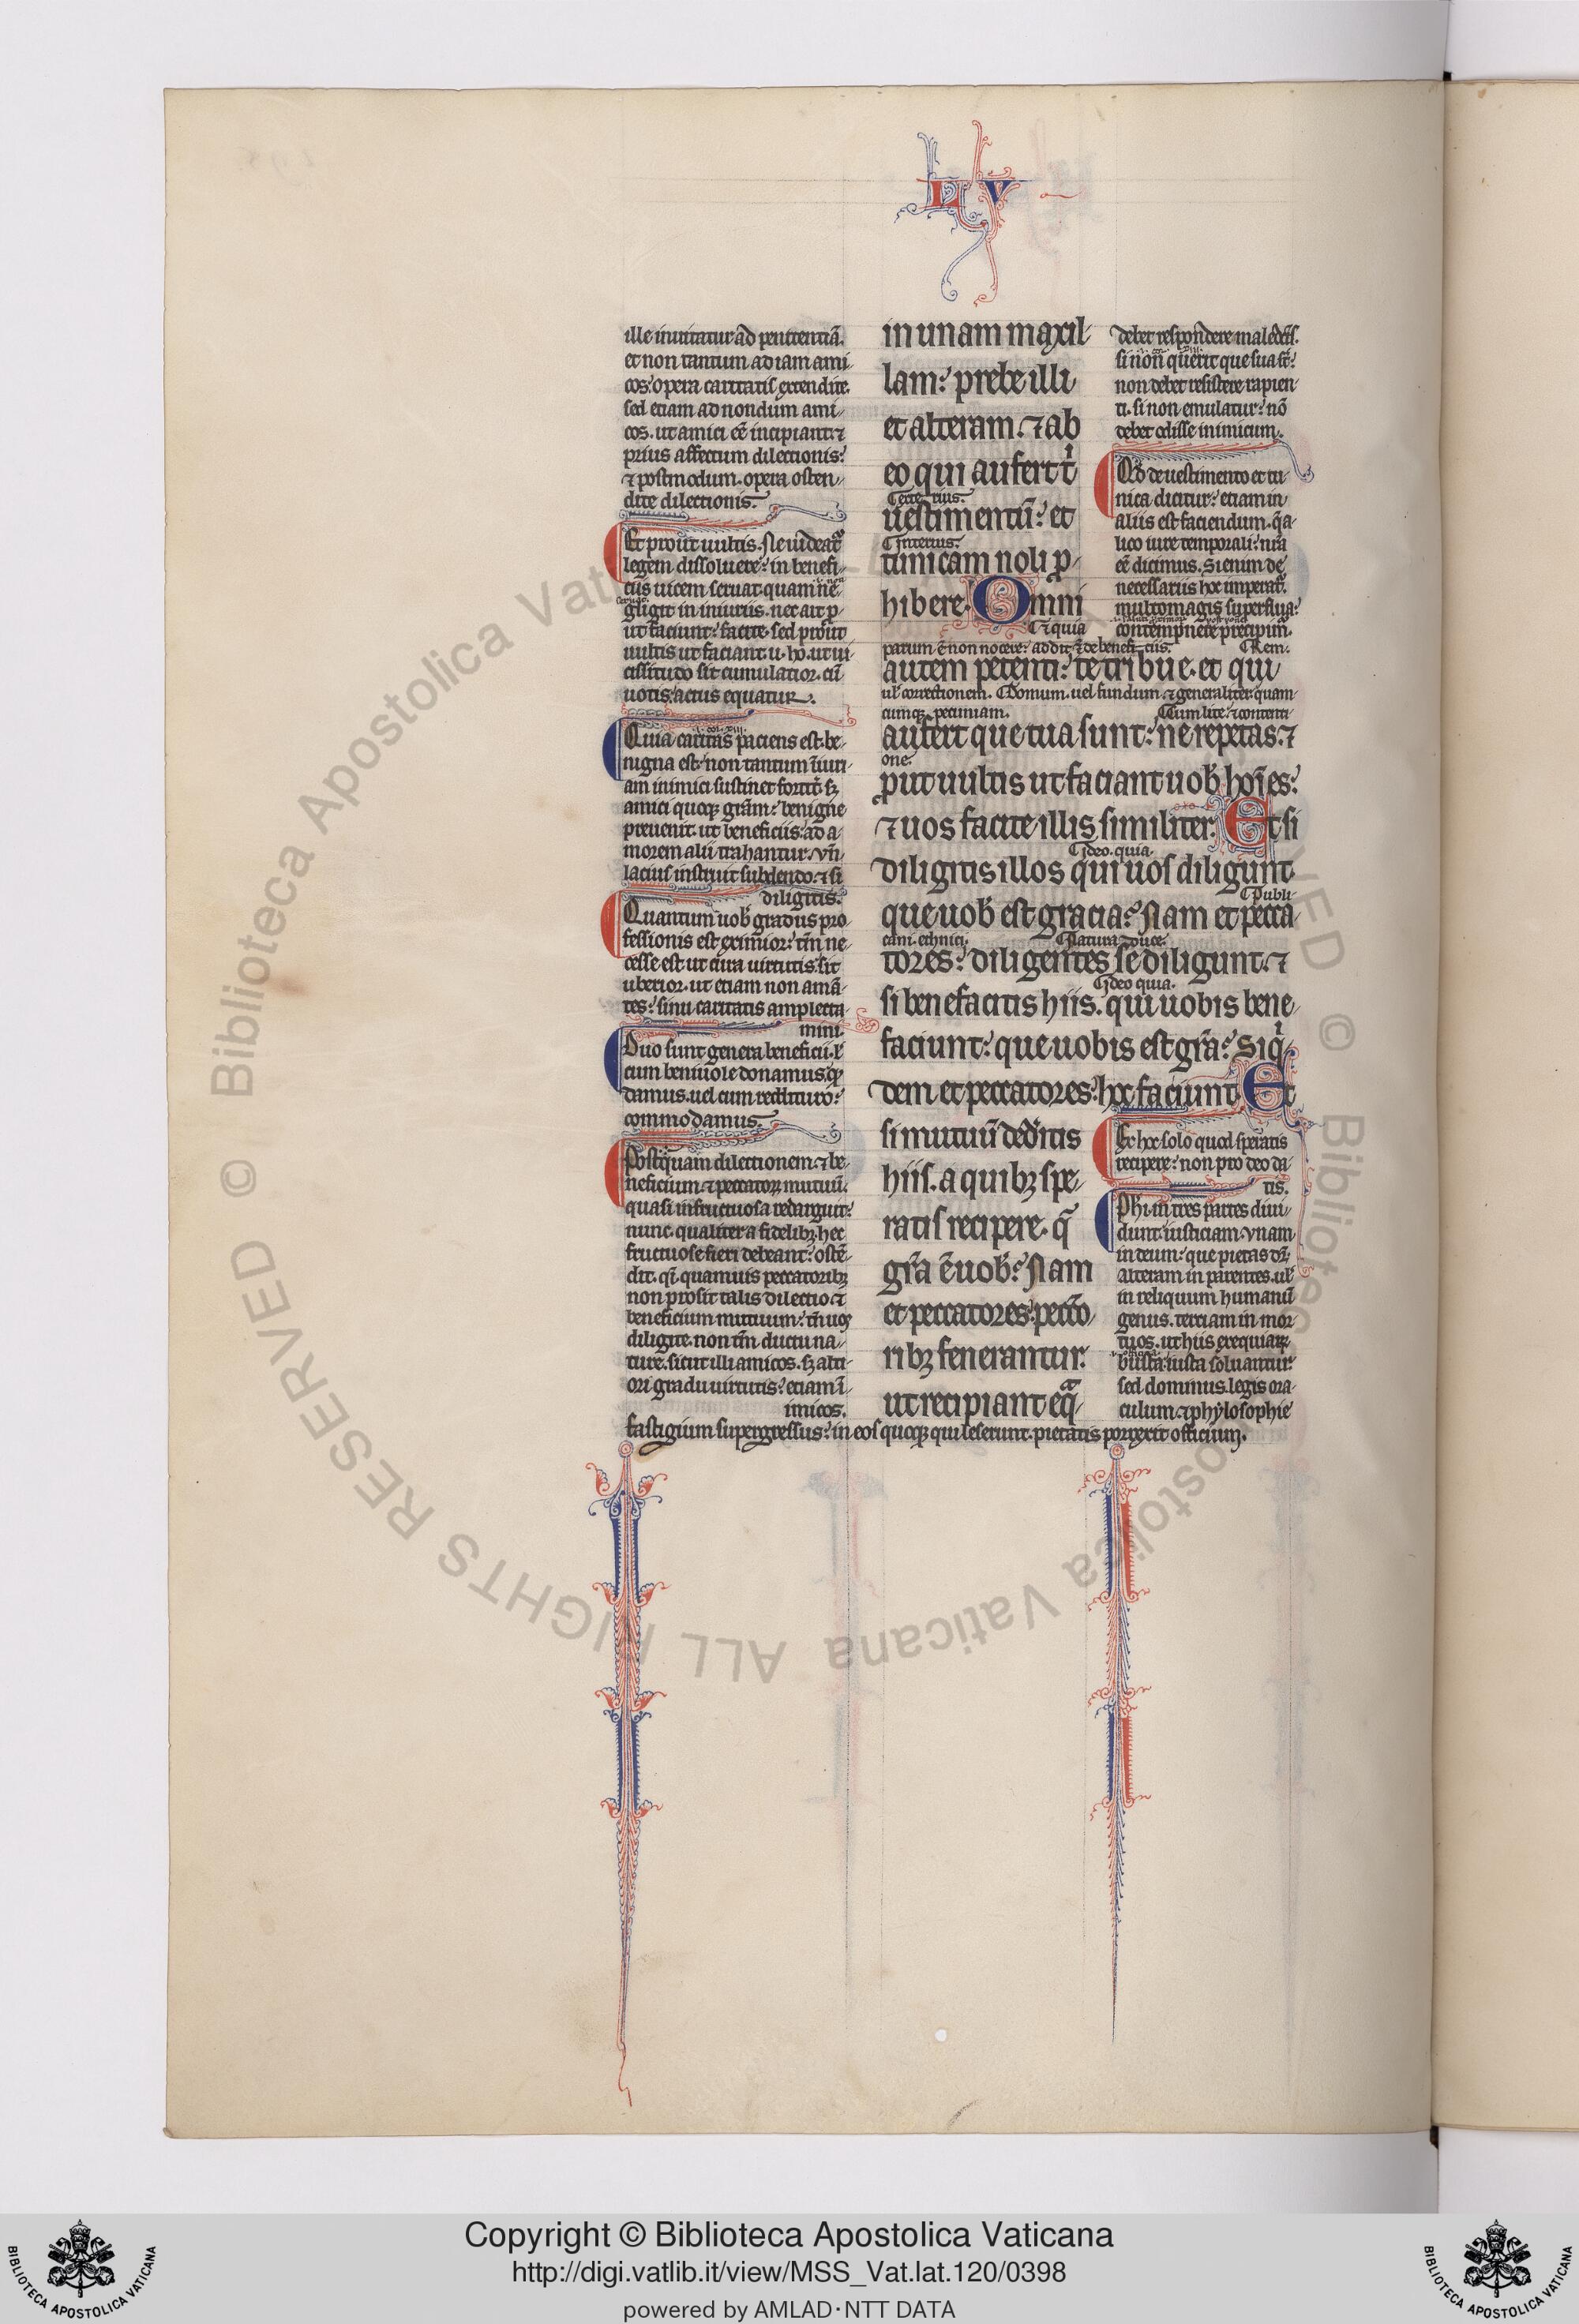 LV
ille inuitatur ad penitentiã.
et non tantum ad iam ami
cos: opera caritatis extendite.
sed etiam ad nondum ami
cos. ut amici eẽ incipiant ⁊
prius affectum dilectionis:
⁊ postmodum. opera osten
dite dilectionis.
Et prout uultis. Ne uideat᷑
legem dissoluere: in benefi
ciis uicem seruat quam ne
gligit in iniuriis. nec ait p
ut faciunt: facite. sed prout
uultis ut faciant u. ho. ut ui
cissitudo sit cumulatior. cũ
uotis actus equatur.
Quia caritas paciens est. be
nigna est. non tantum iniuri
am inimici sustinet fortit᷑. sꝫ
amici quoqꝫ grãm: benigne
preuenit. ut beneficiis ad a
morem alii trahantur. vñ
lacius instruit subdendo. ⁊ si
diligitis.
Quantum uob᷑ gradus pro
fessionis est eximior: tm̃ ne
cesse est ut cura uirtutis sit
uberior. ut etiam non amã
tes: sinu caritatis amplecta
mini.
Duo sunt genera beneficii. l᷑
cum beniuole donamus. qđ
damus. uel cum reddituro:
commodamus.
Postquam dilectionem. ⁊ be
neficium. ⁊ peccatorꝝ mutuũ.
quasi infructuosa redarguit:
nunc. qualiter a fidelibꝫ hec
fructuose fieri debeant: ostẽ
dit. qͥ. quamuis peccatoribꝫ
non prosit talis dilectio. ⁊
beneficium mutuum: tñ uos
diligite. non tm̃ ductu na
ture. sicut illi amicos. sꝫ alti
ori gradu uirtutis: etiam i
imicos.
in unam maxil
lam: prebe illi
et alteram. ⁊ ab
eo qui aufert tͥ
uestimentũ: et
tunicam noli p
hibere. Omni
⁊ quia
parum ẽ non nocere: addit ⁊ de benefitiis. Rem.
autem petenti: te tribue. et qui
ul᷑ correctionem. Domum. uel fundum ⁊ generaliter quam
cumqꝫ pecuniam. Cum lite. ⁊ contenti
aufert que tua sunt: ne repetas. ⁊
one.
put uultis ut faciant uob᷑ hoĩes:
⁊ uos facite illis similiter. Et si
Ideo. quia.
diligitis illos qui uos diligunt
Publi
que uob᷑ est gracia: Nam et pecca
cani. ethnici. Natura duce.
tores: diligentes se diligunt. ⁊
Ideo quia.
si benefacitis hiis. qui uobis bene
faciunt: que uobis est grã: Siqͥ
dem et peccatores: hoc faciunt. Et
si mutuũ dederitis
hiis. a quibꝫ spe
ratis recipere. q̃
grã ẽ uob᷑: Nam
et peccatores: pecco
ribꝫ fenerantur.
ut recipiant eqͣ
debet respondere maledictis.
si non querit que sua st̃:
non debet resistere rapien
ti. si non emulatur: nõ
debet odisse inimicum.
Qđ de uestimento et tu
nica dicitur: etiam in
aliis est faciendum. q̃ a
lico iure temporali: nr̃a
eẽ dicimus. Si enim de
necessariis hoc imperat᷑.
multo magis superflua:
contempnere precipim᷑.
Ex hoc solo quod speratis
recipere: non pro deo da
tis.
Phi. in tres partes diui
dunt. iusticiam. vnam
in deum: que pietas dr̃.
alteram in parentes. ul᷑
in reliquum humanũ
genus. terciam in mor
tuos. ut hiis exequiarꝝ
busta: iusta soluantur.
sed dominus. legis ora
culum. ⁊ phylosophie
fastigium supergressus: in eos quoqꝫ qui leserunt. pietatis porrexit officium.
Copyright © Biblioteca Apostolica Vaticana
http://digi.vatlib.it/view/MSS_Vat.lat.120/0398
powered by AMLAD·NTT DATA
BIBLIOTECA APOSTOLICA VATICANA
BIBLIOTECA APOSTOLICA VATICANA
© Biblioteca Apostolica Vaticana ALL RIGHTS RESERVED © Biblioteca Apostolica Vaticana ALL RIGHTS RESERVED